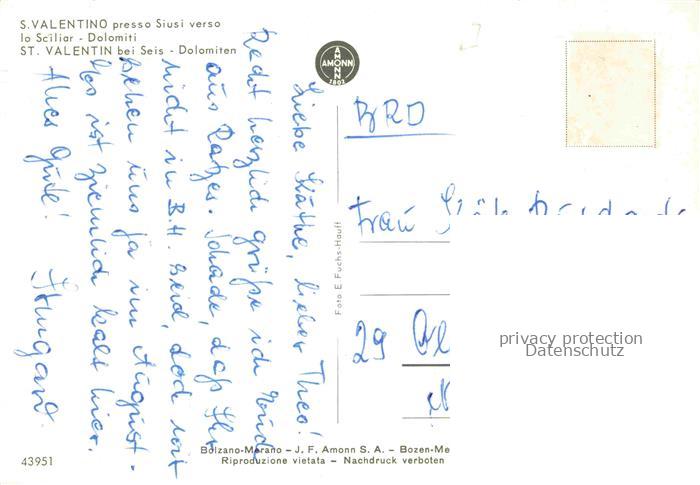 S. VALENTINO presso Siusi verso
lo Sciliar - Dolomiti
ST. VALENTIN bei Seis - Dolomiten
AMONN
AMONN
1802
Liebe Käthe, lieber Theo!
Recht herzliche Grüße ich Euch
aus Ratzes. Schade, daß Ihr
nicht in B.H. seid, doch wir
sehen uns ja im August.
Es ist ziemlich kalt hier.
Alles Gute! Irmgard.
BRD
Frau Käthe
29
Foto E. Fuchs-Hauff
privacy protection
Datenschutz
Bolzano-Merano - J. F. Amonn S. A. - Bozen-Me
Riproduzione vietata - Nachdruck verboten
43951